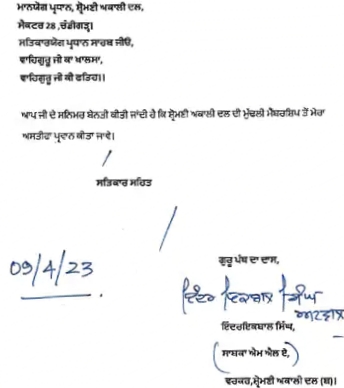 ਮਾਨਯੋਗ ਪ੍ਰਧਾਨ, ਸ਼੍ਰੋਮਣੀ ਅਕਾਲੀ ਦਲ,
ਸੈਕਟਰ 28 ,ਚੰਡੀਗੜ੍ਹ।
ਸਤਿਕਾਰਯੋਗ ਪ੍ਰਧਾਨ ਸਾਹਬ ਜੀਓ,
ਵਾਹਿਗੁਰੂ ਜੀ ਕਾ ਖਾਲਸਾ,
ਵਾਹਿਗੁਰੂ ਜੀ ਕੀ ਫਤਿਹ।।
ਆਪ ਜੀ ਦੇ ਸਨਿਮਰ ਬੇਨਤੀ ਕੀਤੀ ਜਾਂਦੀ ਹੈ ਕਿ ਸ਼੍ਰੋਮਣੀ ਅਕਾਲੀ ਦਲ ਦੀ ਮੁੱਢਲੀ ਮੈਂਬਰਸ਼ਿਪ ਤੋਂ ਮੇਰਾ
ਅਸਤੀਫਾ ਪ੍ਰਵਾਨ ਕੀਤਾ ਜਾਵੇ।
ਸਤਿਕਾਰ ਸਹਿਤ
09/4/23
ਗੁਰੂ ਪੰਥ ਦਾ ਦਾਸ,
ਇੰਦਰ ਇਕਬਾਲ ਸਿੰਘ
ਅਟਵਾਲ
ਇੰਦਰਇਕਬਾਲ ਸਿੰਘ,
(ਸਾਬਕਾ ਐਮ ਐਲ ਏ,)
ਵਰਕਰ,ਸ਼੍ਰੋਮਣੀ ਅਕਾਲੀ ਦਲ (ਬ)।